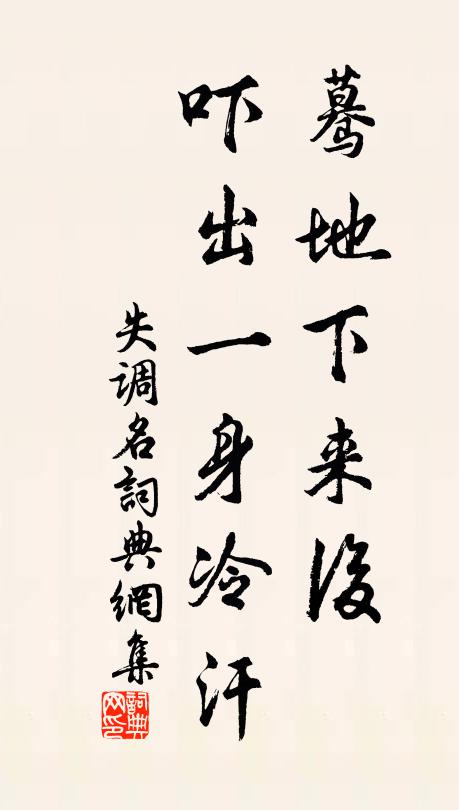 蓦地下来後
吓出一身冷汗
失调名詞典網集
詞典网印